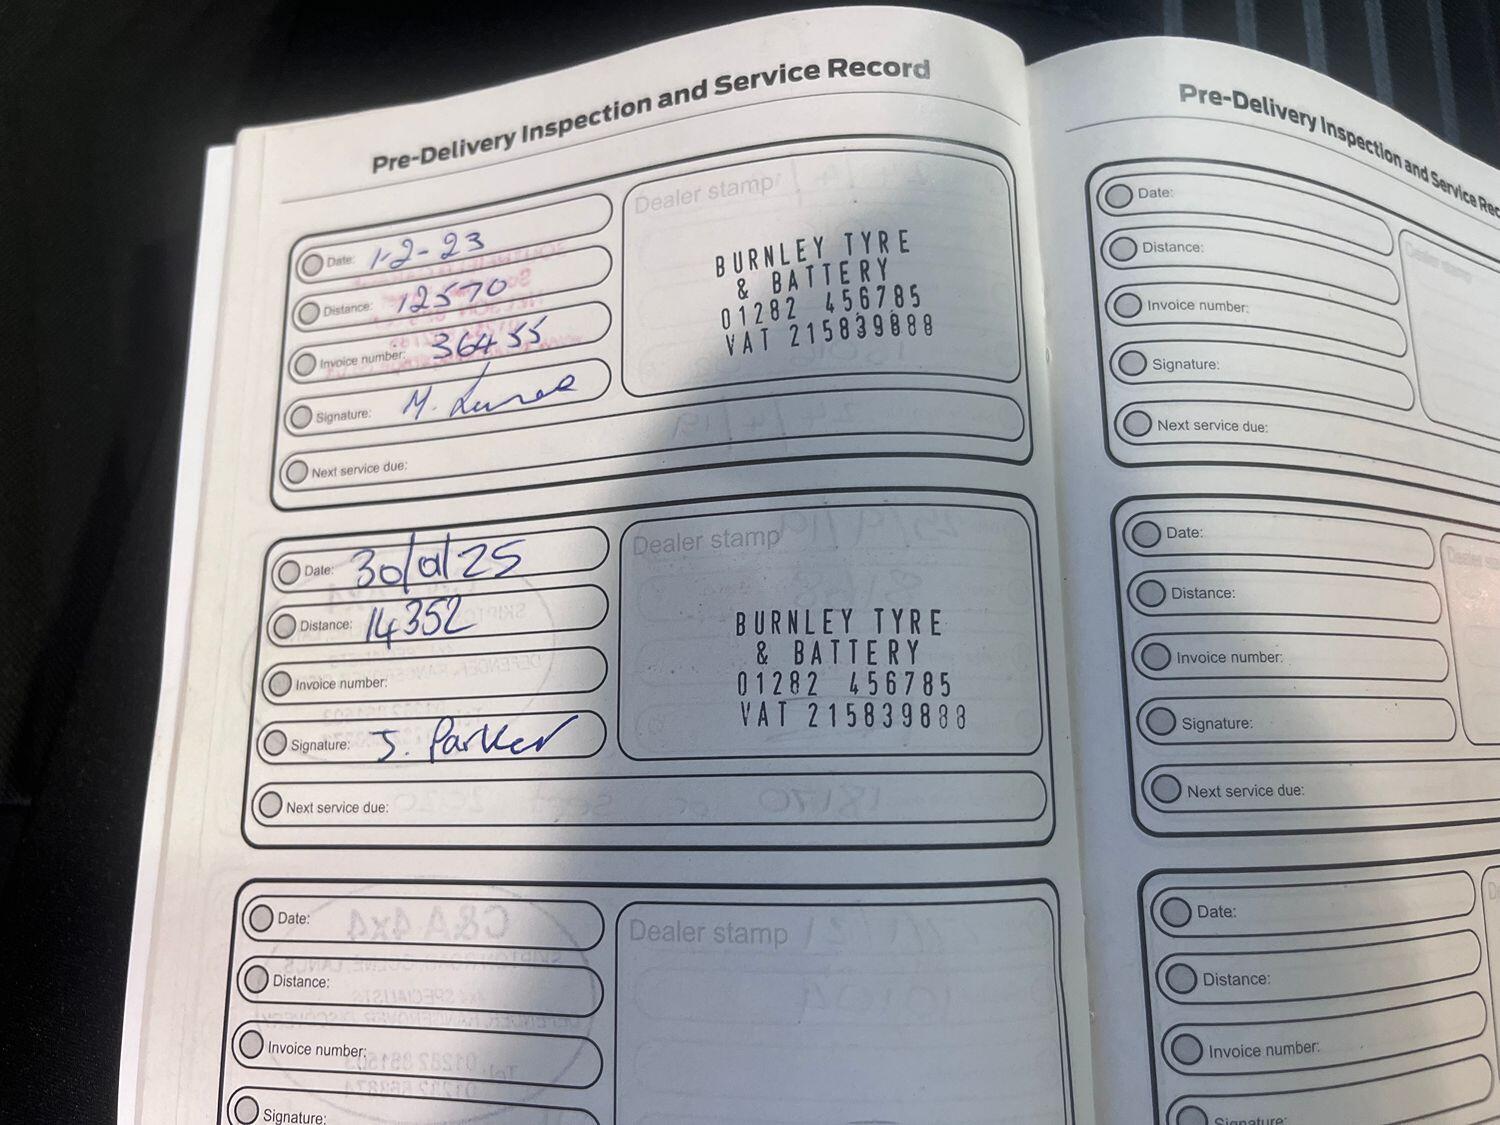 Pre-Delivery Inspection and Service Record
Date: 1-2-23
Distance: 12570
Invoice number: 36455
Signature: M.
Next service due:
Dealer stamp
BURNLEY TYRE
& BATTERY
01282 456785
VAT 215839888
Date: 30/01/25
Distance: 14352
Invoice number:
Signature: J. Parker
Next service due:
Dealer stamp
BURNLEY TYRE
& BATTERY
01282 456785
VAT 215839888
Date:
Distance:
Invoice number:
Signature:
Dealer stamp
Pre-Delivery Inspection and Service Rec
Date:
Distance:
Invoice number:
Signature:
Next service due:
Dealer stamp
Date:
Distance:
Invoice number:
Signature:
Next service due:
Date:
Distance:
Invoice number:
Signature: